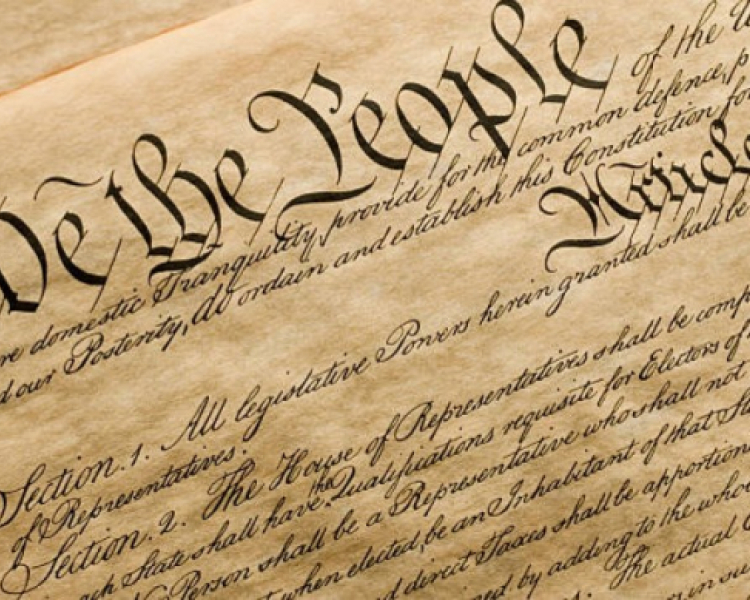 We the People of the U
re domestic Tranquility, provide for the common defence, p
d our Posterity, do ordain and establish this Constitution for
Article
Section. 1. All legislative Powers herein granted shall be
of Representatives.
Section. 2. The House of Representatives shall be comp
ach State shall have the Qualifications requisite for Electors of
No Person shall be a Representative who shall not
t when elected, be an Inhabitant of that St
d direct Taxes shall be apportion
ned by adding to the whol
s. The actual
er in su